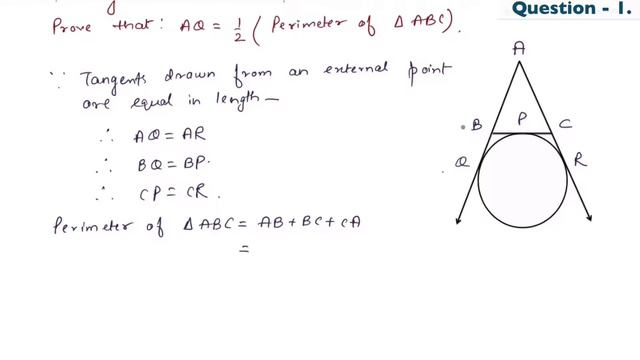 Question - 1.
Prove that: AQ = 1/2 (Perimeter of Δ ABC).
∵ Tangents drawn from an external point
are equal in length —
∴ AQ = AR
∴ BQ = BP.
∴ CP = CR.
Perimeter of Δ ABC = AB + BC + CA
=
A
B
P
C
Q
R